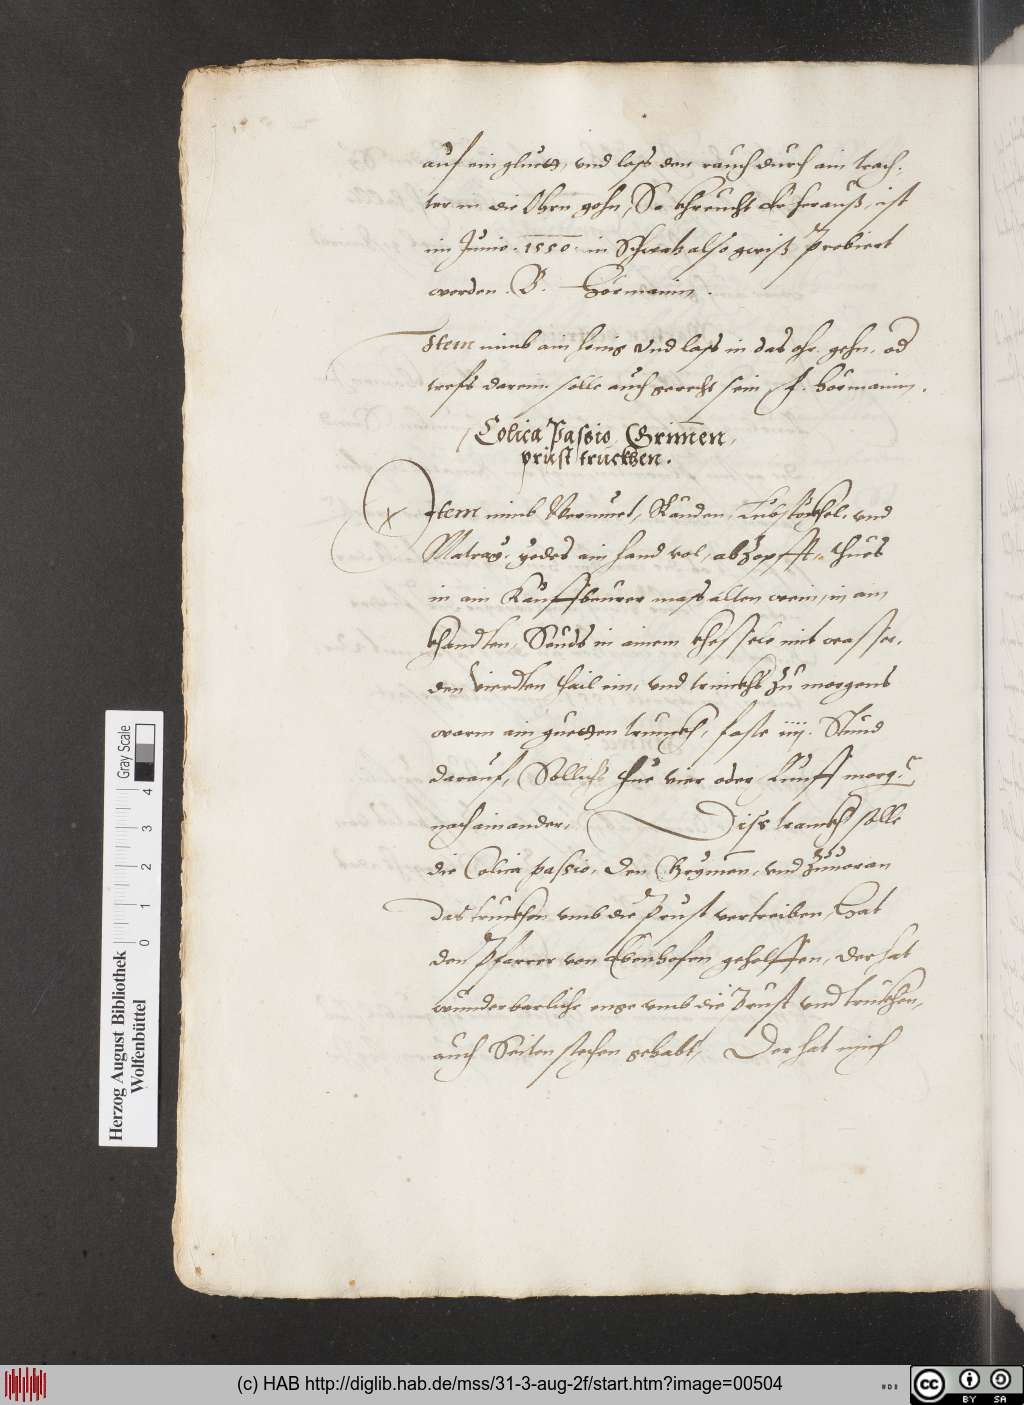 auf ein gluett, vnd lass den rauch durch ain trach-
ter in die Ohrn gehn, So khreucht er herauß, ist
im Junio. 1550. in Schwatz also gwiß probiert
worden. G. Hörmanin.
Item nimb ain honig vnd lass in das ohr gehn, od
treffs darein. solle auch gerecht sein. Hörmanin.
Colica Passio, Grim̄en,
prüst truckhen.
Item nimb Wermuet, Rauden, Lubstöckhel, vnd
Matrag, yedes ain hand vol, abzopfft, thues
in ain Kauffbeurer mass alten wein, in ain
khandten, Seuds in ainem khessele mit wasser,
den vierdten thail ein, vnd trinckhs zu morgens
warm ain guetten trunckh, faste iiij. Stund
darauf, Sollichs thue vier oder Funff morg.
nachainander, Diss tranckh solle
die Colica passio, Den Grymen, vnd zuuoran
das truckhen vmb die Prust vertreiben, Hat
den Pfarrer von Ebenhofen geholffen, der hat
wunderbarliche enge vmb die Prust vnd truckhen,
auch Seiten stechen gehabt, Der hat mich
Herzog August Bibliothek
Wolfenbüttel
0 1 2 3 4
Gray Scale
(c) HAB http://diglib.hab.de/mss/31-3-aug-2f/start.htm?image=00504
cc BY SA